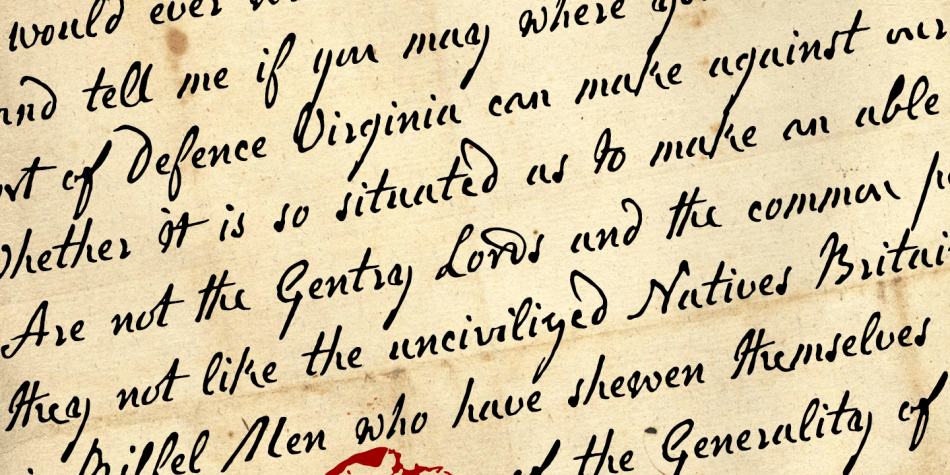 would ever
and tell me if you may where you
rt of Defence Virginia can make against our
Whether it is so situated as to make an able
Are not the Gentry Lords and the common
they not like the uncivilized Natives Britai
Riffel Men who have shewen themselves
of the Generality of